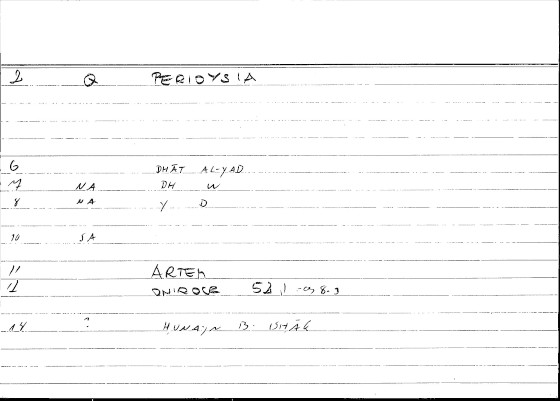 2 Q PERIOYSIA
6 DHĀT AL-YAD
7 NA DH W
8 NA Y D
10 SA
11 ARTEM
12 ONIROCR 52,1 8.3
14 ? HUNAJN B. ISHĀK